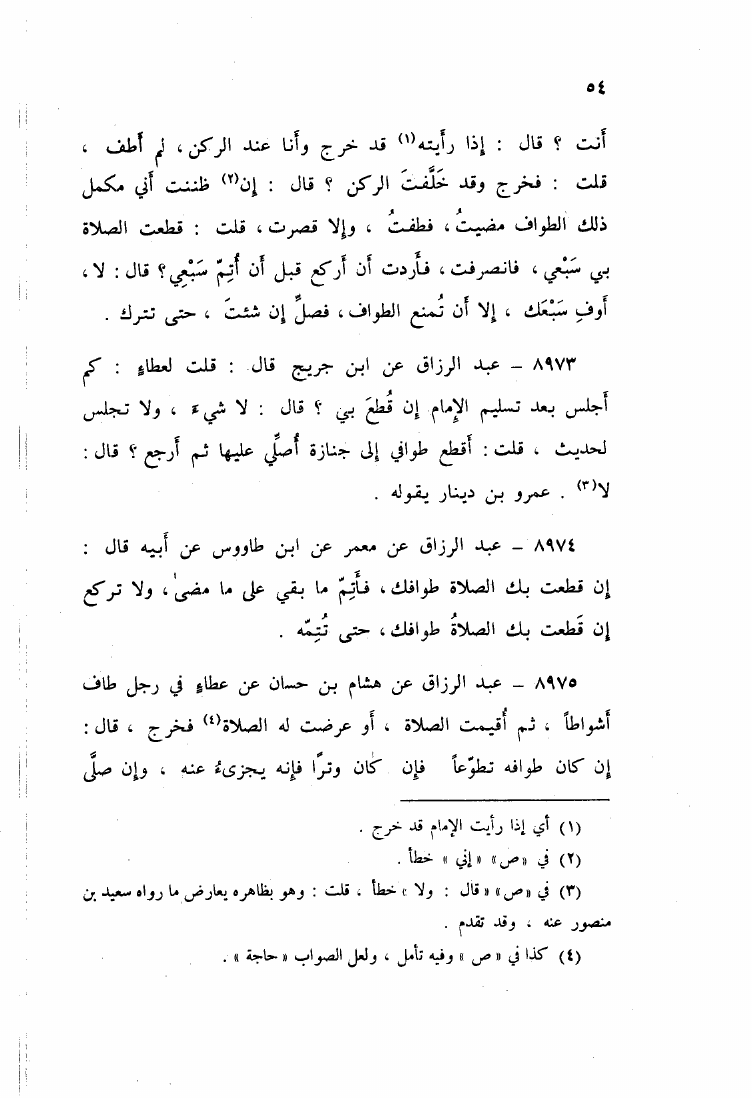 ٥٤
أنت ؟ قال : إذا رأيته(١) قد خرج وأنا عند الركن ، لم أطف ،
قلت : فخرج وقد خَلَّفتَ الركن ؟ قال : إن(٢) ظننت أني مكمل
ذلك الطواف مضيتُ ، فطفتُ ، وإلا قصرت ، قلت : قطعت الصلاة
بي سَبْعي ، فانصرفت ، فأردت أن أركع قبل أن أُتِمّ سَبْعِي ؟ قال : لا ،
أوفِ سَبْعَك ، إلا أن تُمنع الطواف ، فصلِّ إن شئتَ ، حتى تترك .
٨٩٧٣ – عبد الرزاق عن ابن جريج قال : قلت لعطاءٍ : كم
أجلس بعد تسليم الإمام إن قُطعَ بي ؟ قال : لا شيءَ ، ولا تجلس
لحديث ، قلت : أقطع طوافي إلى جنازة أُصلِّي عليها ثم أرجع ؟ قال :
لا(٣) . عمرو بن دينار يقوله .
٨٩٧٤ – عبد الرزاق عن معمر عن ابن طاووس عن أبيه قال :
إن قطعت بك الصلاة طوافك ، فأَتِمّ ما بقي على ما مضىٰ ، ولا تركع
إن قَطعت بك الصلاةُ طوافك ، حتى تُتِمّه .
٨٩٧٥ – عبد الرزاق عن هشام بن حسان عن عطاءٍ في رجل طاف
أشواطاً ، ثم أُقيمت الصلاة ، أو عرضت له الصلاة(٤) فخرج ، قال :
إن كان طوافه تطوّعاً فإن كان وترًا فإنه يجزىءُ عنه ، وإن صلَّى
(١) أي إذا رأيت الإمام قد خرج .
(٢) في «ص» «إني» خطأ .
(٣) في «ص» «قال : ولا» خطأ ، قلت : وهو بظاهره يعارض ما رواه سعيد بن
منصور عنه ، وقد تقدم .
(٤) كذا في «ص» وفيه تأمل ، ولعل الصواب «حاجة» .